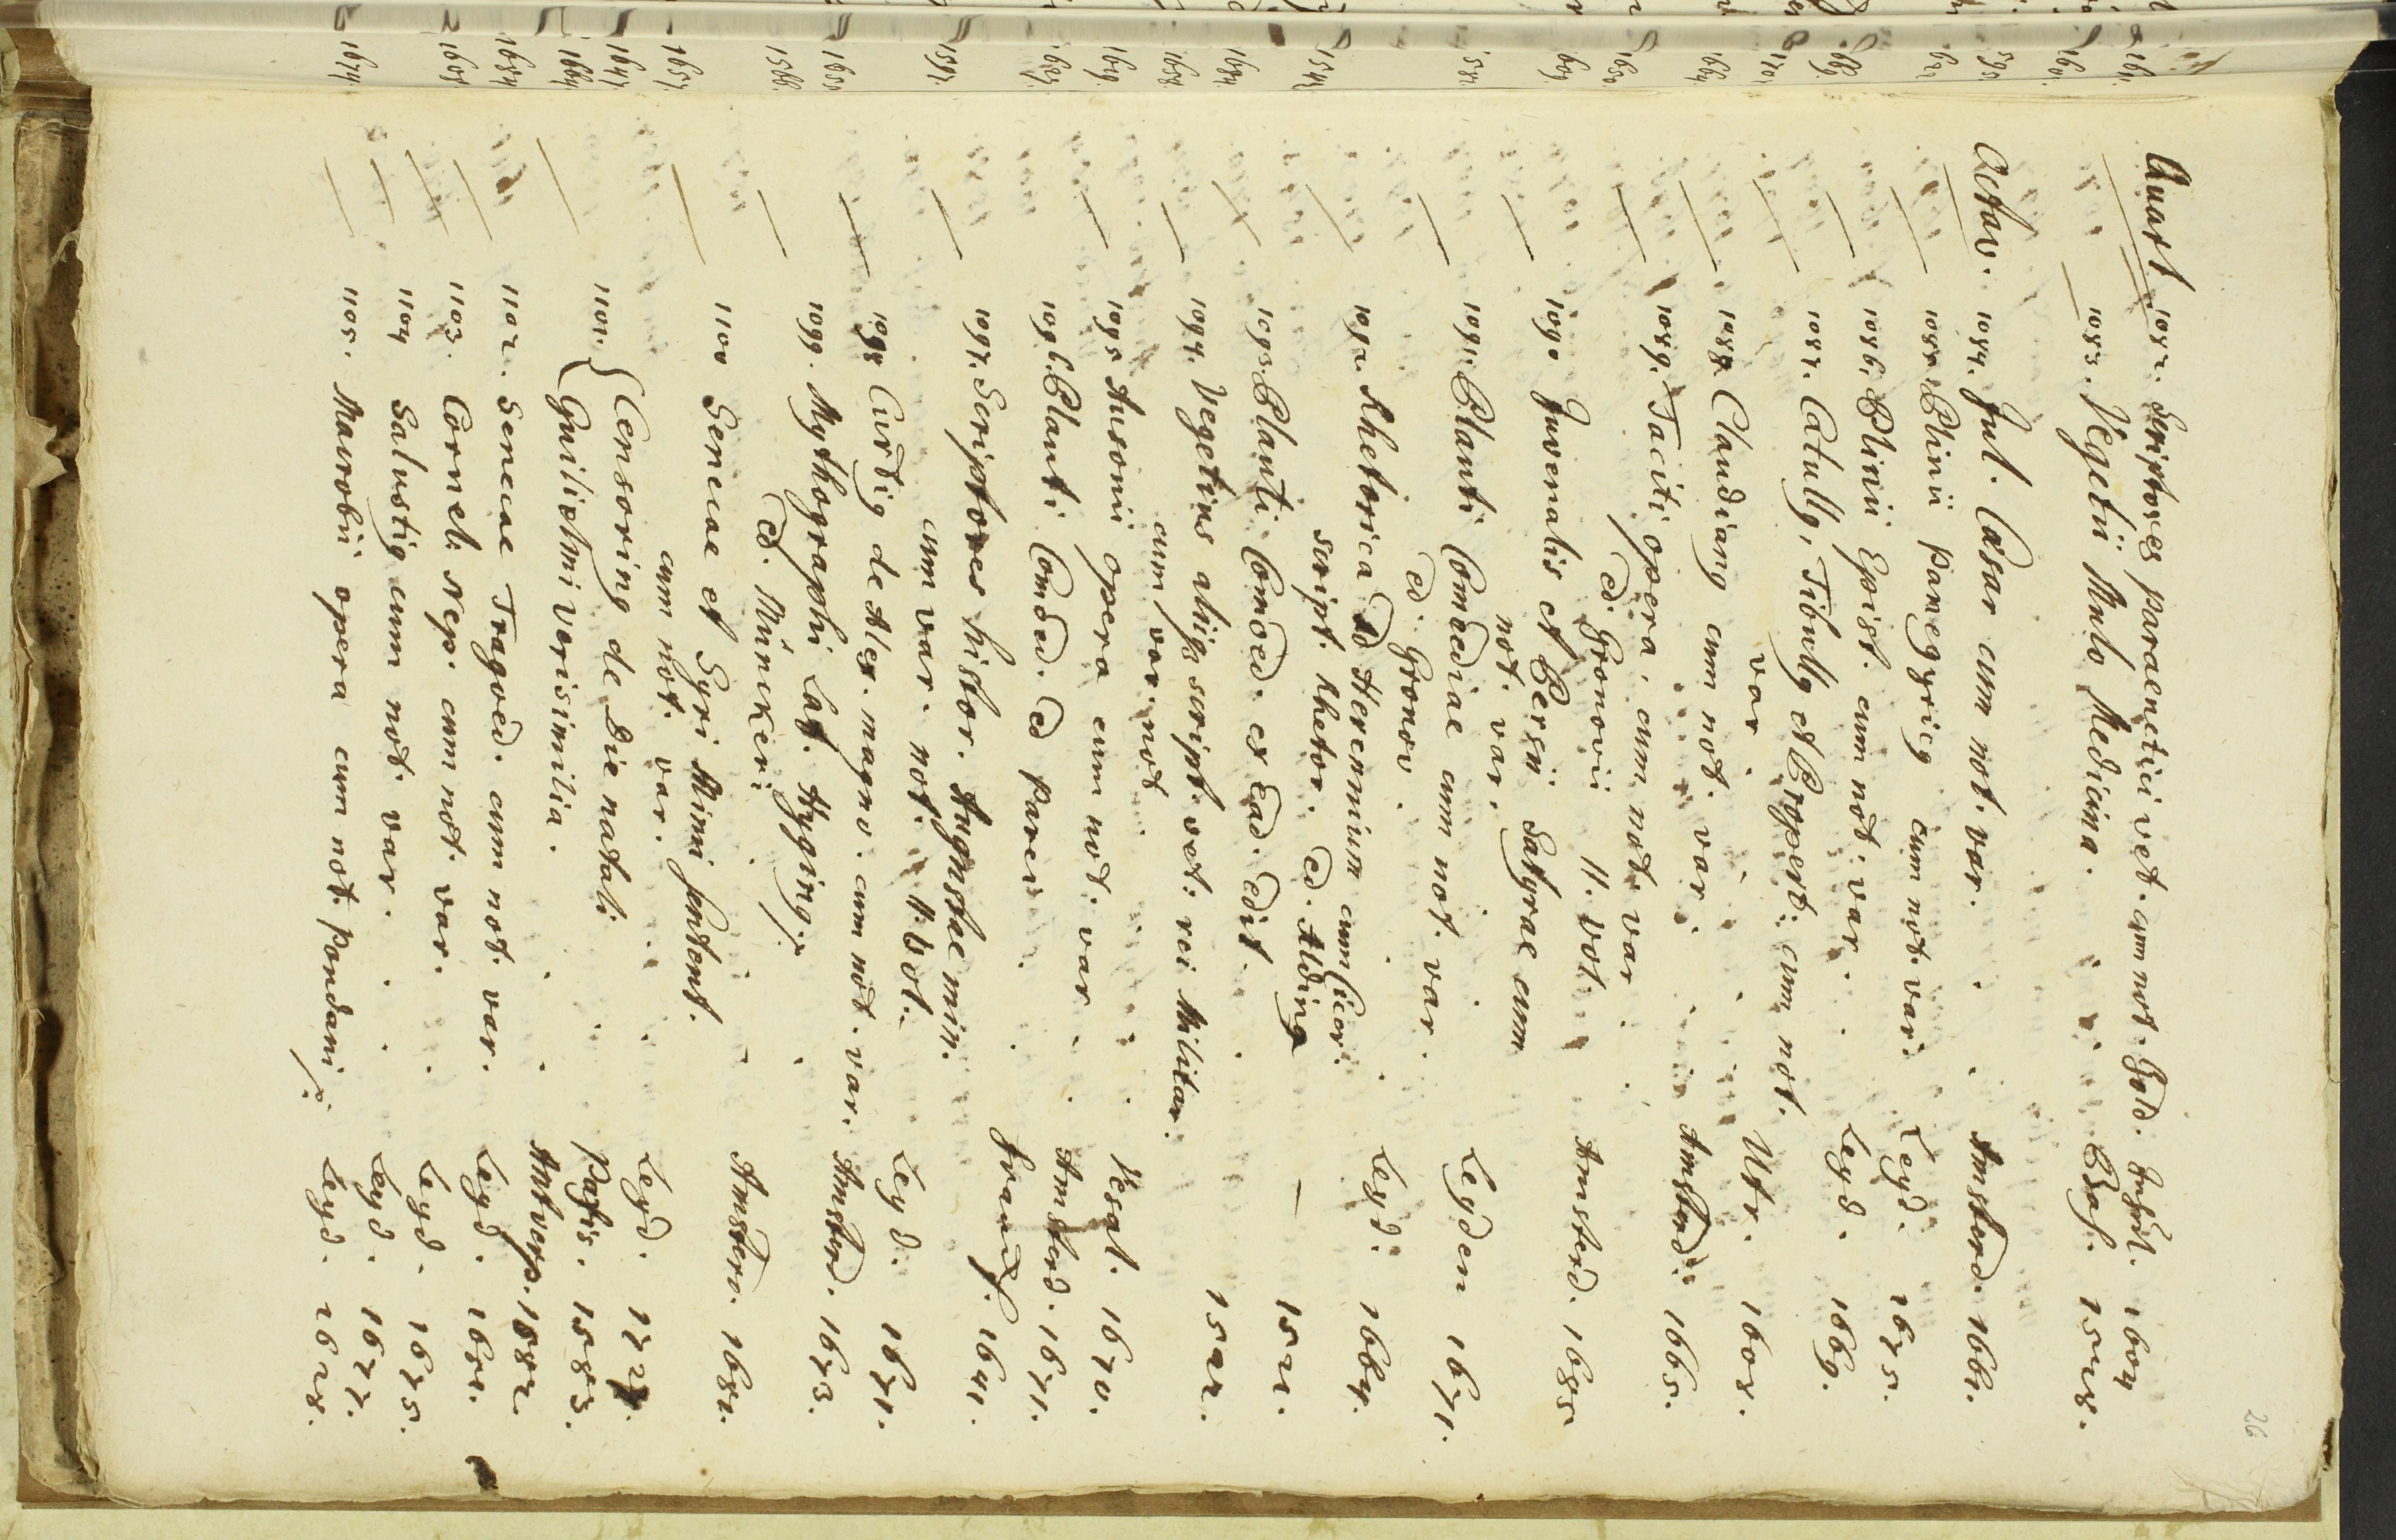 26
Quart. 1082. Scriptores paraenetici vet. cum not. Gold. Insul. 1604
1083. Vegetii Mulo Medicina. Bas. 1528.
Octav. 1084. Jul. Cæsar cum not. var. Amsterd. 1661.
1085. Plinii Panegyricq cum not. var. Leyd. 1675.
1086. Plinii Epist. cum not. var. Leyd. 1669.
1087. Catullq, Tibullq et Propert. cum not.
var. Utr. 1608.
1088. Claudianq cum not. var. Amsterd. 1665.
1089. Taciti opera. cum not. var
ed. Gronovii 11. vol. Amsterd. 1685
1090 Juvenalis et Persii Satyrae cum
not. var. Leyden 1671.
1091. Plauti Comœdiae cum not. var.
ed. Gronov. Leyd. 1664.
1092. Rhetorica ad Herennium cum Cicer.
script. rhetor. ed. Aldinq — 1521.
1093. Plauti Comœd. ex ead. edit. 1522.
1094. Vegetius aliiq script. vet. rei Militar.
cum var. not. Vesal. 1670.
1095 Ausonii opera cum not. var. Amsterd. 1671.
1096. Plauti Comœd. ed Parei. Francf. 1641.
1097. Scriptores histor. Augustae min.
cum var. not. 11. vol. Leyd. 1671.
1098 Curtiq de Alex. magno. cum not. var. Amsterd. 1673.
1099. Mythographi Lat. Hyginq p.
ed. Münkeri Amster. 1681.
1100 Senecae et Syri Mimi sentent.
cum not. var. Leyd. 1727.
1101. { Censorinq de die natali Paris. 1583.
Guilielmi Verisimilia. Antverp. 1582.
1102. Senecae Tragoed. cum not. var. Leyd. 1651.
1103. Cornel. Nep. cum not. var. Leyd. 1675.
1104 Salustiq cum not. var. Leyd. 1677.
1105. Macrobii opera cum not. Pontani p. Leyd. 1628.